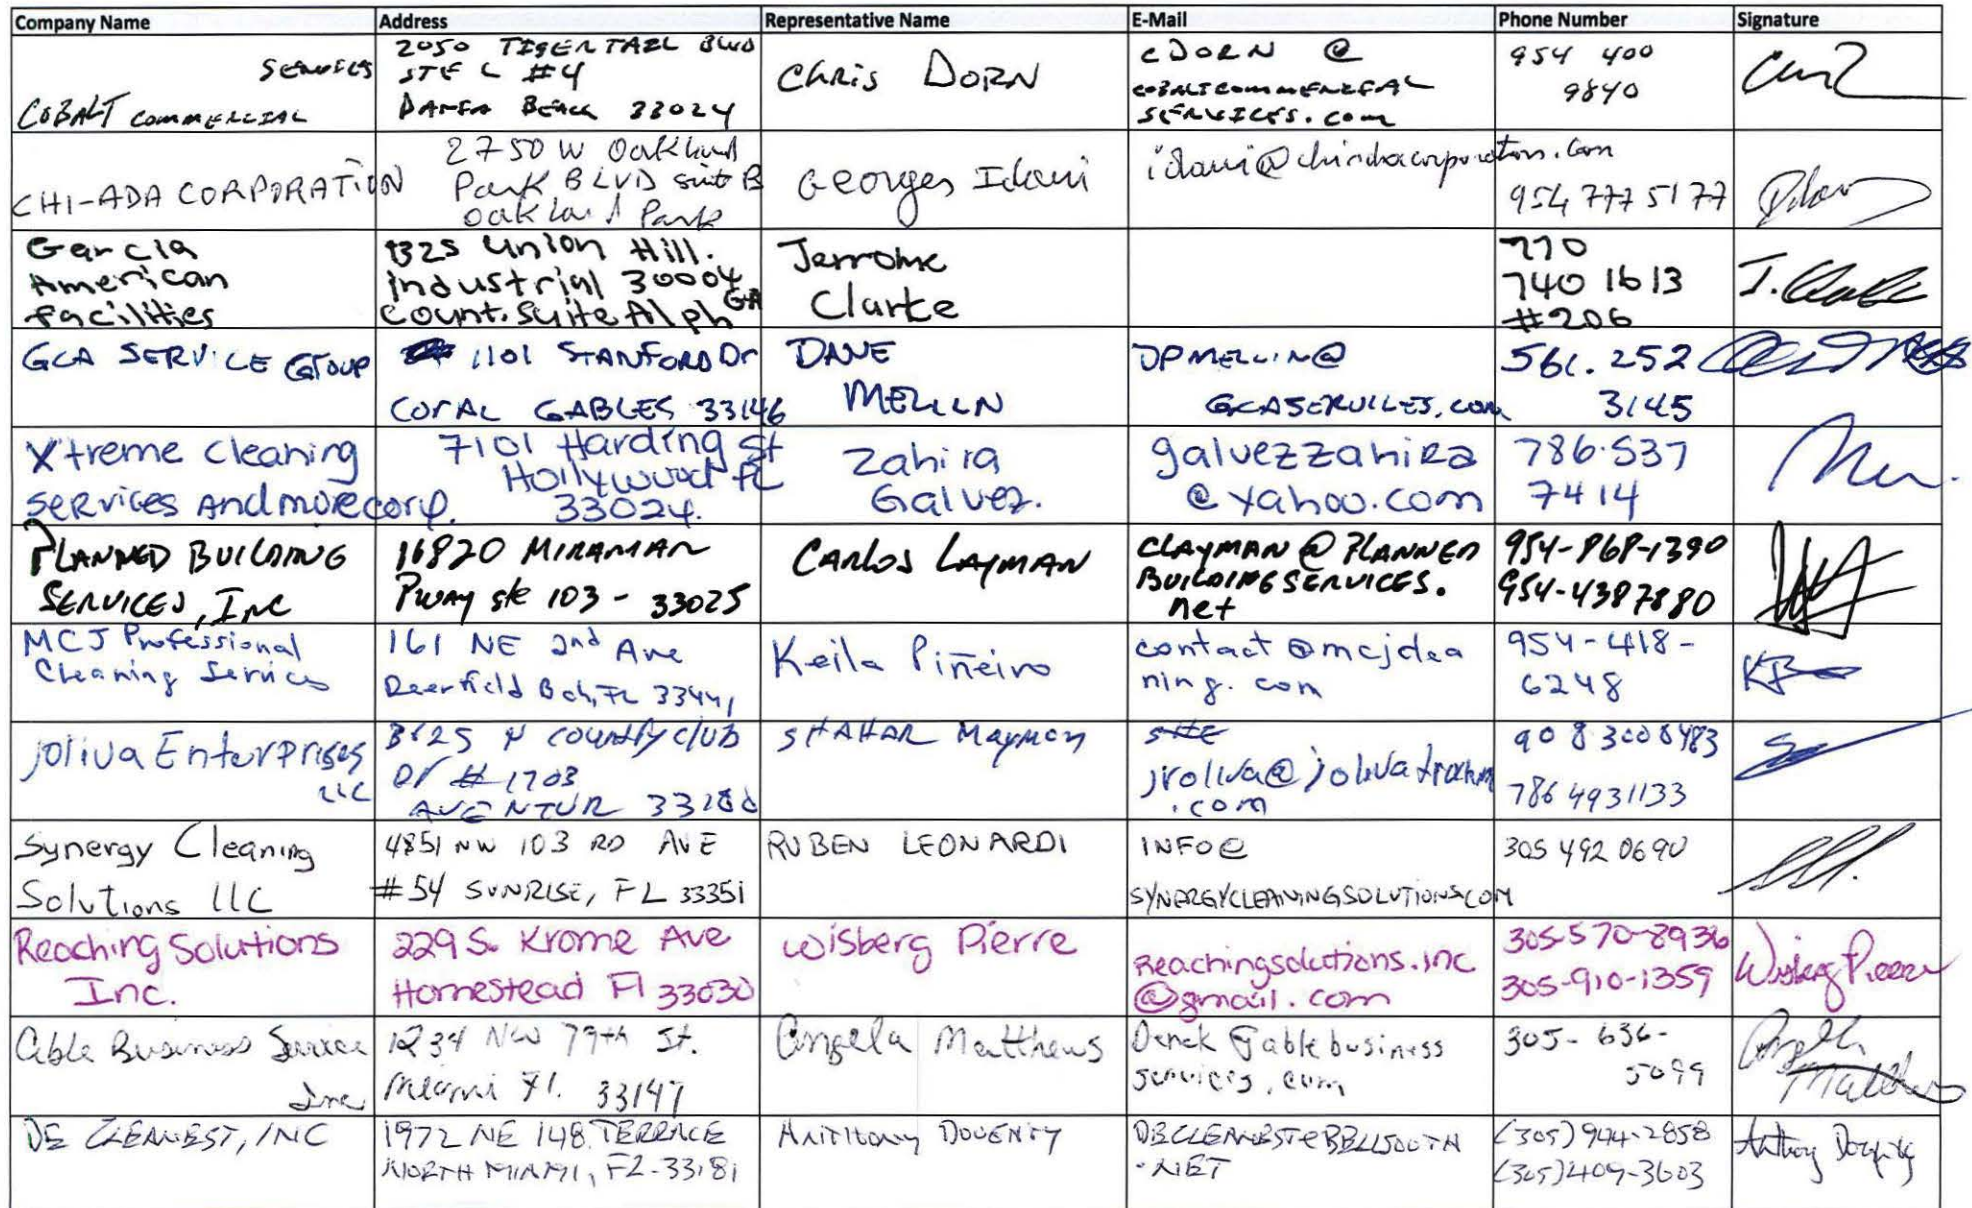 Company Name Address Representative Name E-Mail Phone Number Signature
SERVICES
COBALT COMMERCIAL
2050 TIGERTAIL BLVD
STE C #4
DANIA BEACH 33024
Chris DORN
CDORN @
COBALTCOMMERCIAL
SERVICES.com
954 400
9840
CHI-ADA CORPORATION
2750 W Oakland
Park BLVD suit B
Oakland Park
Georges Idani
954 777 5177
Garcia
American
facilities
1325 Union Hill.
Industrial 30004
Count. Suite Alph GA
Jerrome
Clarke
770
740 1613
#206
J. Clarke
GCA SERVICE GROUP
1101 STANFORD Dr
CORAL GABLES 33146
DANE
MELLIN
DPMELLIN@
GCASERVICES.com
561.252
3145
Xtreme cleaning
services And more corp.
7101 Harding st
Hollywood FL
33024.
Zahira
Galvez.
galvezzahira
@yahoo.com
786.537
7414
PLANNED BUILDING
SERVICES, INC
16820 MIRAMAR
Pway ste 103 - 33025
CARLOS LAYMAN
CLAYMAN @ PLANNED
BUILDING SERVICES.
net
954-868-1390
954-4387880
MCJ Professional
Cleaning Services
161 NE 2nd Ave
Deerfield Bch, FL 33441
Keila Piñeiro
contact @mcjclea
ning.com
954-418-
6248
KP
joliva Enterprises
LLC
3625 N country club
Dr # 1703
AVENTUR 33180
SHAHAR Maymon
jroliva@
.com
908 3008483
786 4931133
Synergy Cleaning
Solutions LLC
4851 NW 103 RD AVE
#54 SUNRISE, FL 33351
RUBEN LEONARDI
INFO@
SYNERGYCLEANINGSOLUTIONS.COM
305 492 0690
Reaching Solutions
Inc.
229 S. Krome Ave
Homestead Fl 33030
Wisberg Pierre
Reachingsolutions.inc
@gmail.com
305-570-8936
305-910-1359
Wisberg Pierre
Able Business Service
Inc
1234 NW 79th St.
Miami Fl. 33147
Angela Matthews
Derek @ablebusiness
services.com
305-636-
5099
Angela
Matthews
DE CLEANEST, INC
1972 NE 148 TERRACE
NORTH MIAMI, FL-33181
Anthony DOUENTY
DECLEANEST@BELLSOUTH
.NET
(305) 944-2858
(305) 409-3603
Anthony